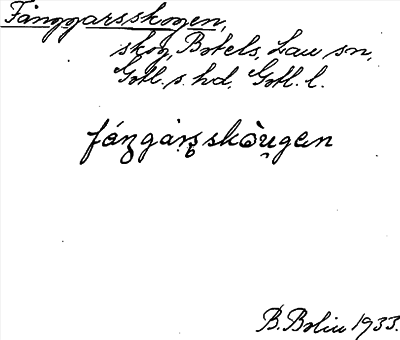 Fånggarsskogen,
skog, Botels, Lau sn,
Gotl. s. hd, Gotl. l.
fáŋgàrsskòugen
B. Bolin 1933.